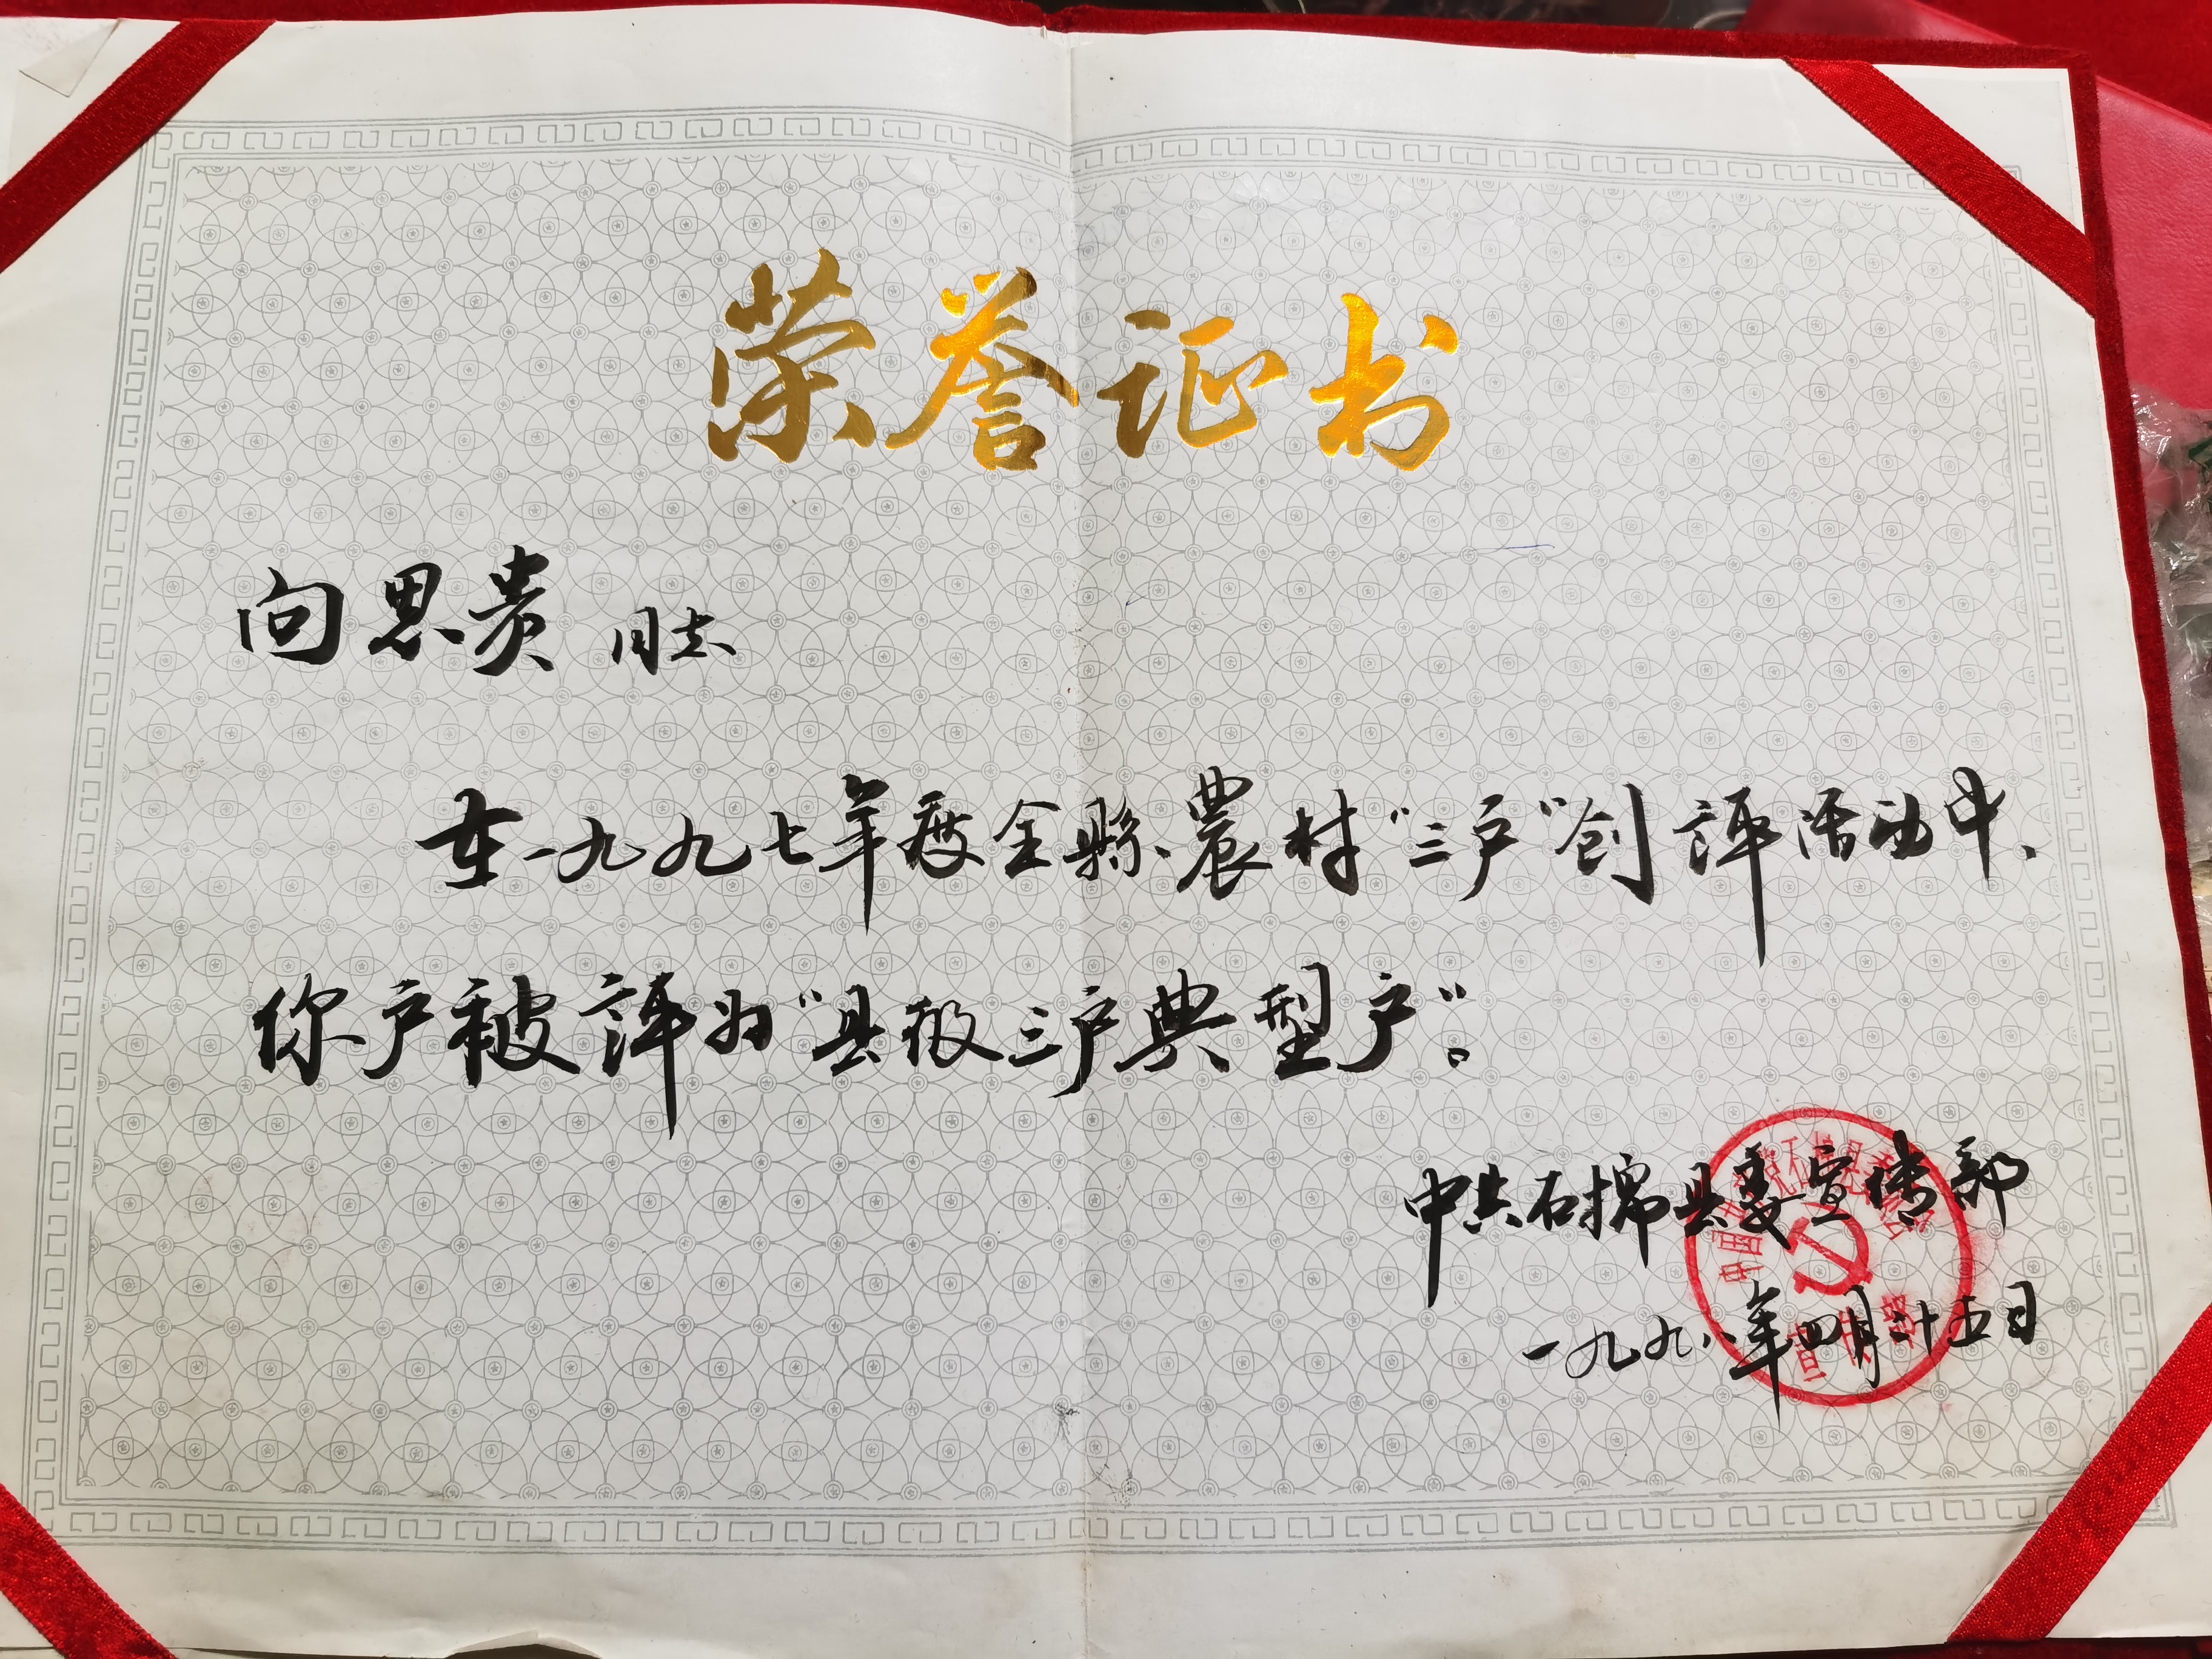 荣誉证书
向思贵 同志
在一九九七年度全縣農村“三户”创评活动中、
你户被评为“县级三户典型户”。
中共石棉县委宣传部
一九九八年四月廿五日